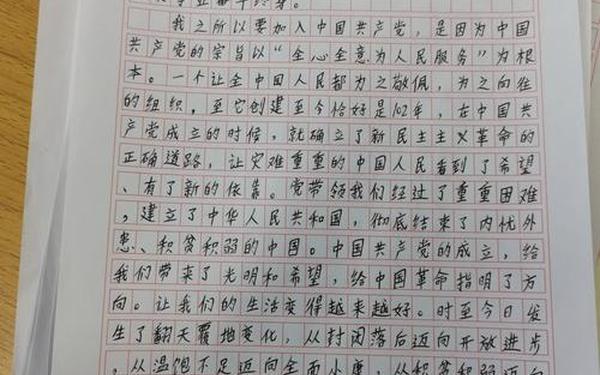 我之所以要加入中国共产党，是因为中国
共产党的宗旨以“全心全意为人民服务”为根
本。一个让全中国人民都为之敬佩，为之向往
的组织，至它创建至今恰好是102年，在中国共
产党成立的时候，就确立了新民主主义革命的
正确道路，让灾难重重的中国人民看到了希望
、有了新的依靠。党带领我们经过了重重困难
，建立了中华人民共和国，彻底结束了内忧外
患、积贫积弱的中国。中国共产党的成立，给
我们带来了光明和希望，给中国革命指明了方
向。让我们的生活变得越来越好。时至今日发
生了翻天覆地变化，从封闭落后迈向开放进步
，从温饱不足迈向全面小康，从积贫积弱迈向